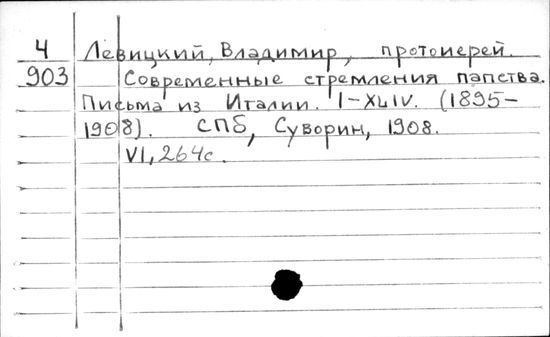 4 Левицкий, Владимир, протоиерей.
903 Современные стремления папства.
Письма из Италии. I-XLIV. (1895-
1908). СПБ, Суворин, 1908.
VI, 264с.